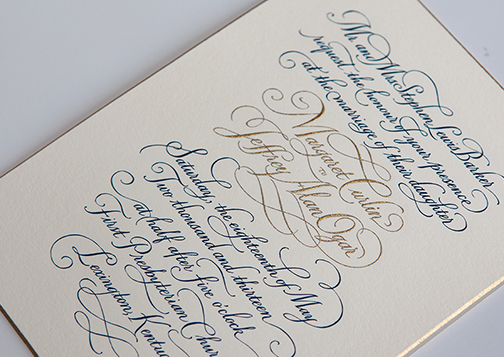 Mr. and Mrs. Stephen Lewis Barker
request the honour of your presence
at the marriage of their daughter
Margaret
to
Jeffrey Alan Ogar
Saturday, the eighteenth of May
Two thousand and thirteen
at half after five o'clock
First Presbyterian
Lexington,